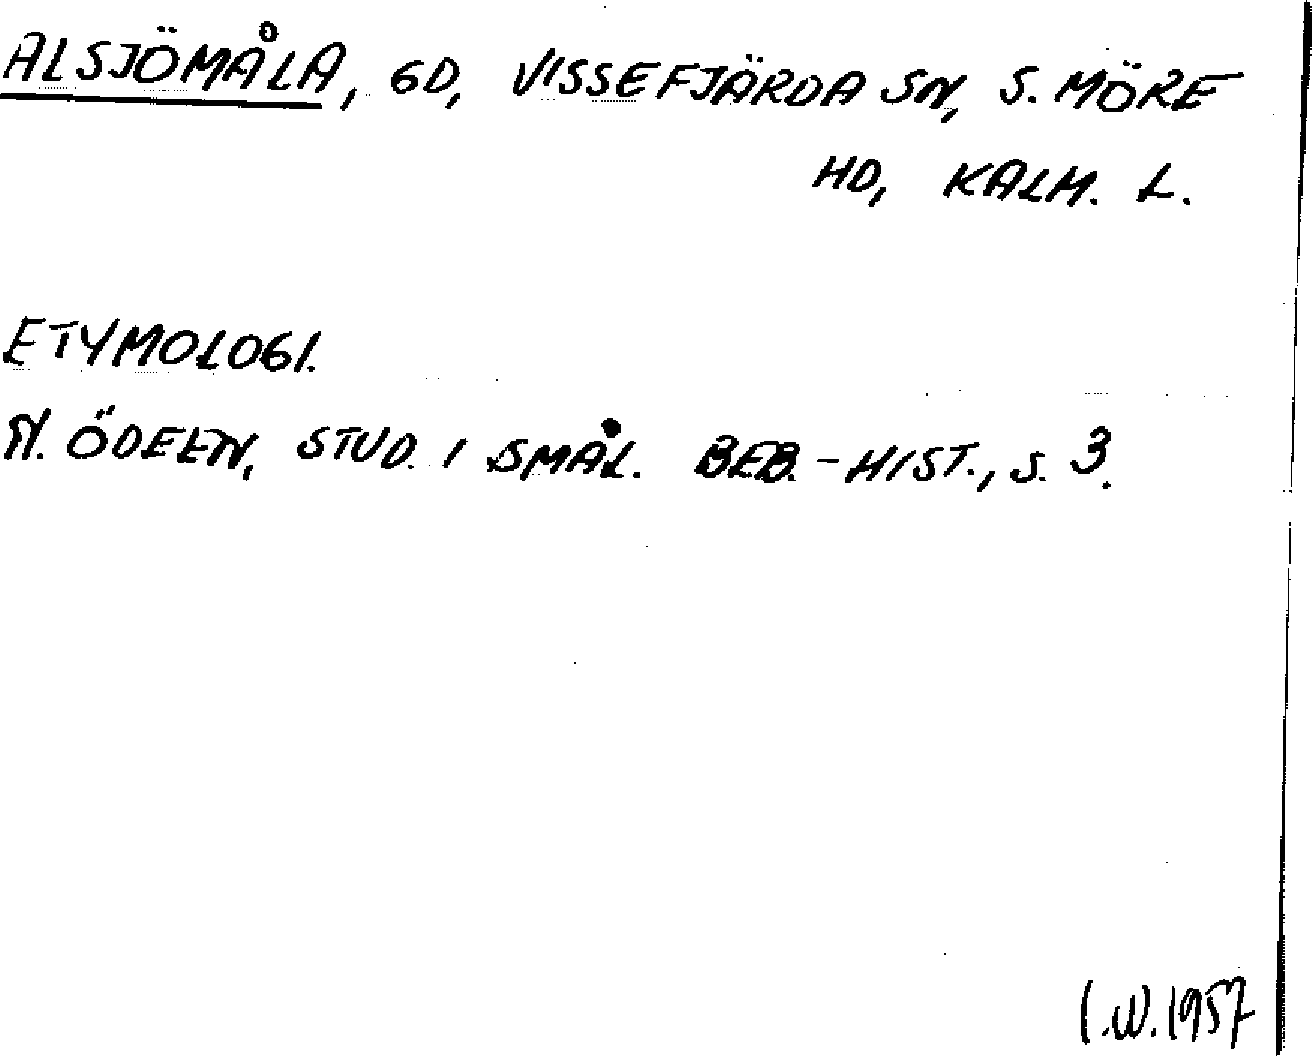 ALSJÖMÅLA, GD, VISSEFJÄRDA SN, S. MÖRE
HD, KALM. L.
ETYMOLOGI.
N. ÖDEEN, STUD. I SMÅL. BEB.-HIST., S. 3.
I.W. 1957